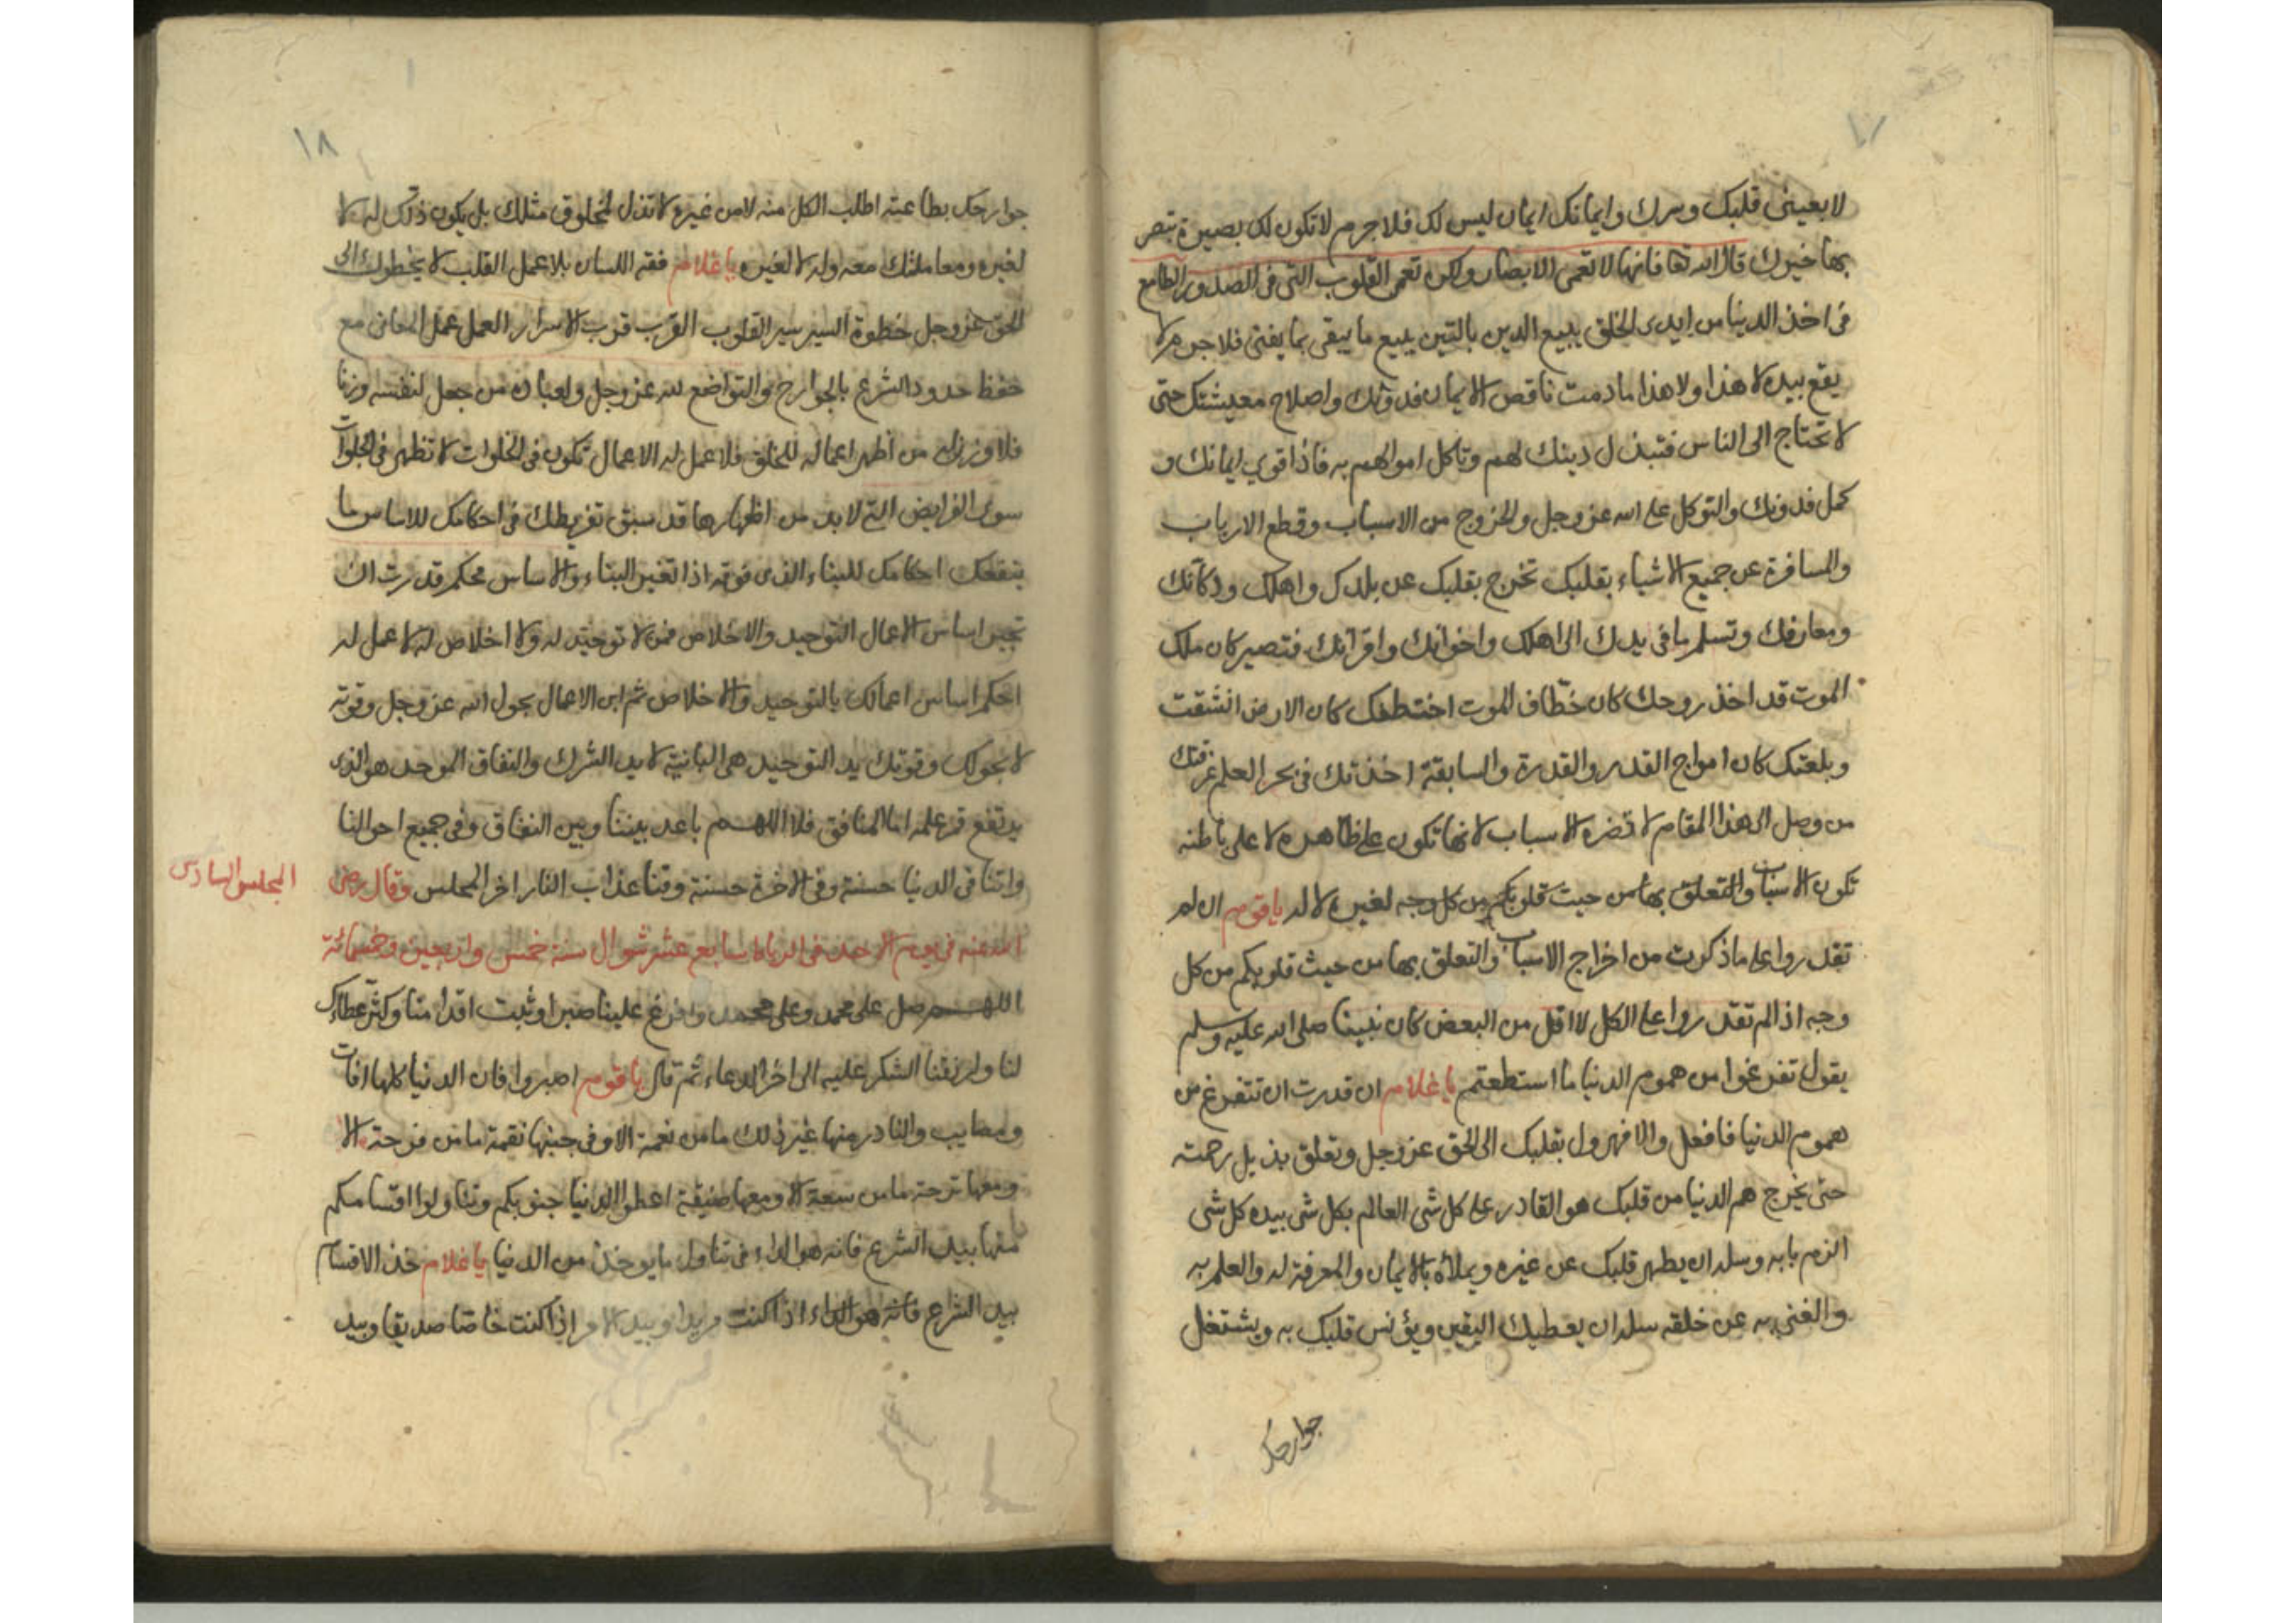 ١٧
لا بعيني قلبك وسرك وايمانك ايمان ليس لك فلا جرم لا تكون لك بصيرة تبصر
بها غيرك قال الله تعا فانها لا تعمى الابصار ولكن تعمى القلوب التي في الصدور الطامع
في اخذ الدنيا من ايدى الخلق يبيع الدين بالتين يبيع ما يبقى بما يفنى فلا جرم لا
يقع بيده لا هذا ولا هذا ما دمت ناقص الايمان فدونك واصلاح معيشتك حتى
لا تحتاج الى الناس فتبذل دينك لهم وتاكل اموالهم به فاذا قوي ايمانك و
كمل فدونك والتوكل على الله عز وجل والخروج من الاسباب وقطع الارباب
والمسافرة عن جميع الاشياء بقلبك تخرج بقلبك عن بلدك واهلك ودكانك
ومعارفك وتسلم ما في يدك الى اهلك واخوانك واقرانك فتصير كان ملك
الموت قد اخذ روحك كان خطّاف الموت اختطفك كان الارض انشقت
وبلعتك كان امواج القدر والقدرة والسابقة اخذتك في بحر العلم غرقتك
من وصل الى هذا المقام لا تضره الاسباب لانها تكون على ظاهره لا على باطنه
تكون الاسباب والتعلق بها من حيث قلوبكم من كل وجه لغيره لا له يا قوم ان لم
تقدروا على ما ذكرت من اخراج الاسباب والتعلق بها من حيث قلوبكم من كل
وجه اذا لم تقدروا على الكل لا اقل من البعض كان نبينا صلى الله عليه وسلم
يقول تفرغوا من هموم الدنيا ما استطعتم يا غلام ان قدرت ان تتفرغ من
هموم الدنيا فافعل والا فهرول بقلبك الى الحق عز وجل وتعلق بذيل رحمته
حتى يخرج هم الدنيا من قلبك هو القادر على كل شى العالم بكل شى بيده كل شى
الزم بابه وسله ان يطهر قلبك عن غيره ويملاه بالايمان والمعرفة له والعلم به
والغنى به عن خلقه سله ان يعطيك اليقين ويؤنس قلبك به ويشتغل
جوارحك
١٨
جوارحك بطاعته اطلب الكل منه لا من غيره لا تذل لمخلوق مثلك بل يكون ذلك له لا
لغيره ومعاملتك معه وله لا لغيره يا غلام فقه اللسان بلا عمل القلب لا يخطوك الى
الحق عز وجل خطوة السير سير القلوب القرب قرب الاسرار العمل عمل المعانى مع
حفظ حدود الشرع بالجوارح والتواضع لله عز وجل ولعباده من جعل لنفسه وزنا
فلا وزن له من اظهر اعماله للخلق فلا عمل له الاعمال تكون في الخلوات لا تظهر في الجلوات
سوى الفرايض التي لا بد من اظهارها قد سبق تفريطك في احكامك للاساس ما
ينفعك احكامك للبناء الذى فوقه اذا تغير البناء والاساس محكم قدرت ان
تجبر اساس الاعمال التوحيد والاخلاص فمن لا توحيد له ولا اخلاص له لا عمل له
احكم اساس اعمالك بالتوحيد والاخلاص ثم ابن الاعمال بحول الله عز وجل وقوته
لا بحولك وقوتك يد التوحيد هي البانية لا يد الشرك والنفاق الموحد هو الذى
يرتفع قدر عمله اما المنافق فلا اللهم باعد بيننا وبين النفاق وفي جميع احوالنا
واتنا في الدنيا حسنة وفي الاخرة حسنة وقنا عذاب النار اخر المجلس وقال رضى
المجلس السادس
الله عنه في يوم الاحد في الرباط سابع عشر شوال سنة خمس واربعين وخمسمائة
اللهم صل على محمد وعلى محمد وافرغ علينا صبرا وثبت اقدامنا وكثر عطاك
لنا وارزقنا الشكر عليه الى اخر الدعاء ثم قال يا قوم اصبروا فان الدنيا كلها افات
ومصايب والنادر منها غير ذلك ما من نعمة الا وفى جنبها نقمة ما من فرحة الا
ومعها ترحة ما من سعة الا ومعها ضيقة اعطوا الدنيا جنوبكم وتناولوا اقسامكم
منها بيد الشرع فانه هو الداء في تناول ما يوخذ من الدنيا يا غلام خذ الاقسام
بيد الشرع فانه هو الداء اذا كنت مريدا وبيد الامر اذا كنت خاصا صديقا وبيد